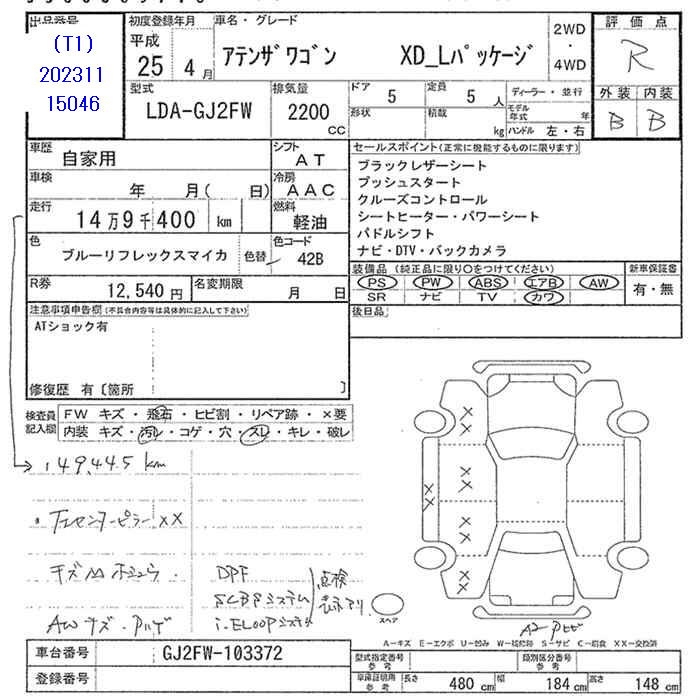 出品番号
(T1)
202311
15046
初度登録年月
平成
25 4月
車名・グレード
アテンザワゴン XD_Lパッケージ
2WD
・
4WD
評価点
R
外装 内装
B B
型式
LDA-GJ2FW
排気量
2200
CC
ドア 5
定員 5 人
形状
積載 kg
ディーラー・並行
モデル年式 年
ハンドル 左・右
車歴 自家用
シフト AT
車検 年 月( 日)
冷房 AAC
走行 14万9千400 km
燃料 軽油
色 ブルーリフレックスマイカ 色替
色コード 42B
R券 12,540円
名変期限 月 日
セールスポイント(正常に機能するものに限ります)
ブラックレザーシート
プッシュスタート
クルーズコントロール
シートヒーター・パワーシート
パドルシフト
ナビ・DTV・バックカメラ
装備品 (純正品に限り○をつけてください)
PS PW ABS エアB AW
SR ナビ TV カワ
新車保証書
有・無
後日品
注意事項申告欄(不具合内容等は具体的に記入して下さい)
ATショック有
修復歴 有〔箇所 〕
検査員記入欄
FW キズ・飛石・ヒビ割・リペア跡・×要
内装 キズ・汚レ・コゲ・穴・スレ・キレ・破レ
149,445 km
・左センターピラーXX
キズ凹ホシュウ.
AWキズ・ハゲ
DPF
SCBSシステム
i-ELOOPシステム
点検
表示アリ
スペア
A2
A-キズ E-エクボ U-凹み W-補修跡 S-サビ C-腐食 XX-交換済
車台番号 GJ2FW-103372
登録番号
型式指定番号
参考
類別区分番号
参考
車庫証明用
参考
長さ 480 cm 幅 184 cm 高さ 148 cm